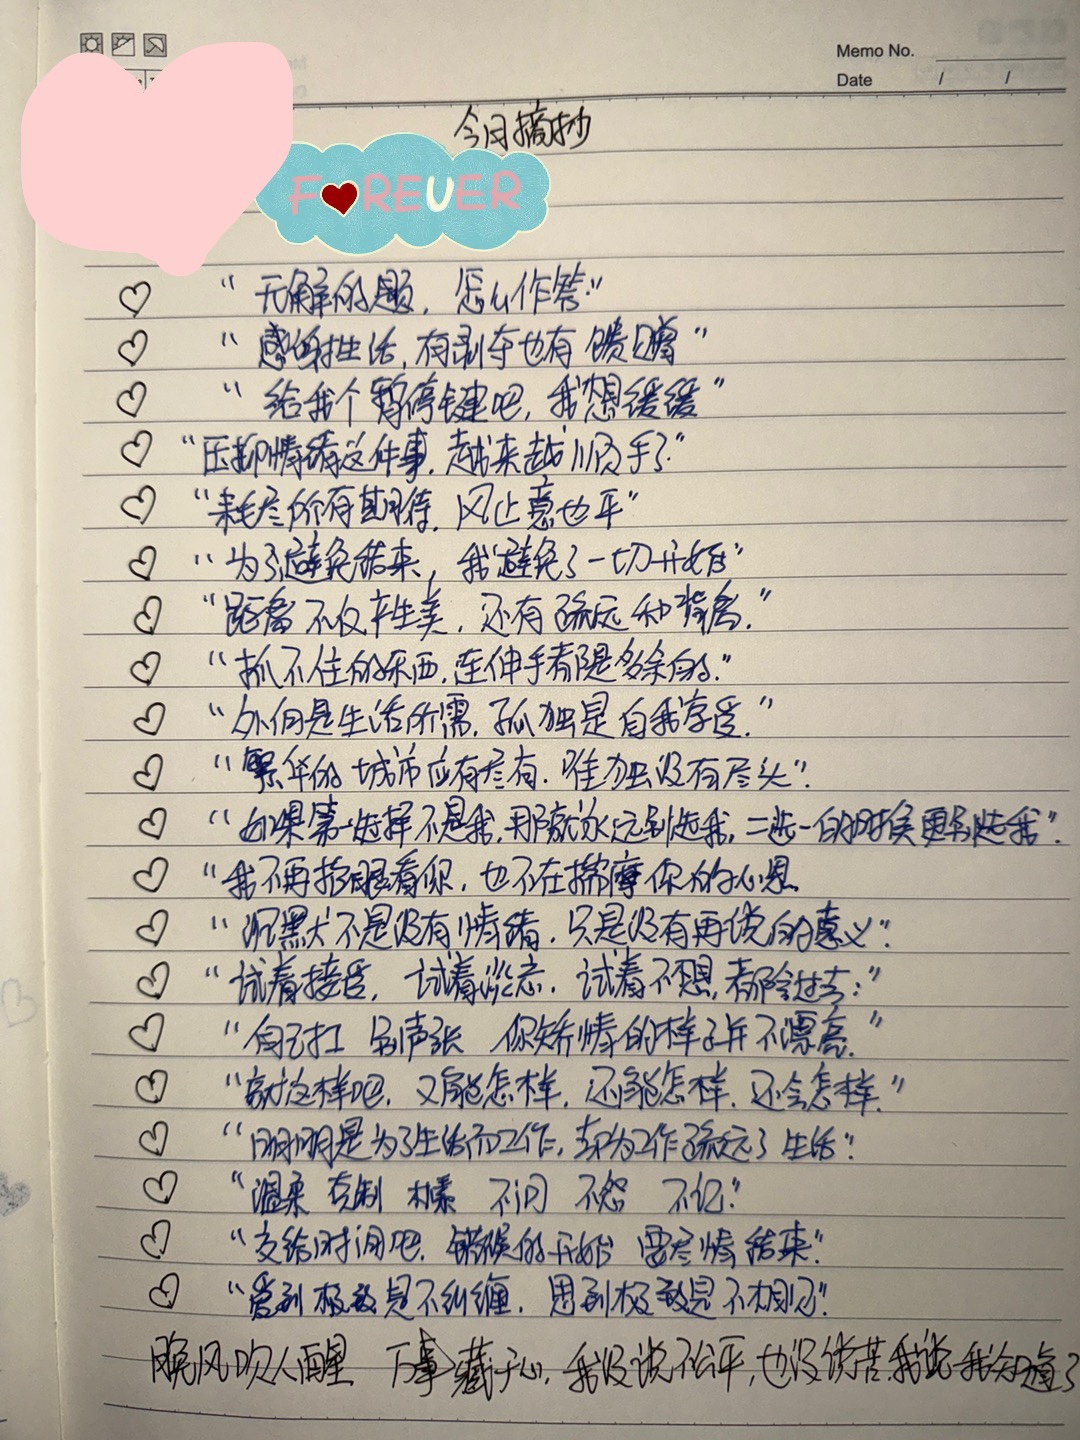 Memo No.
Date / /
今日摘抄
FOREVER
“无解的题，怎么作答”
“感谢生活，有剥夺也有馈赠”
“给我个暂停键吧，我想缓缓”
“压抑情绪这件事，越来越顺手了”
“耗尽所有期待，风止意也平”
“为了避免结束，我避免了一切开始”
“距离不仅产生美，还有疏远和背离.”
“抓不住的东西，连伸手都是多余的.”
“外向是生活所需，孤独是自我享受.”
“繁华的城市应有尽有，唯独没有尽头”.
“如果第一选择不是我，那就永远别选我，二选一的时候更别选我”.
“我不再抬眼看你，也不在揣摩你的心思
“沉默不是没有情绪，只是没有再说的意义”.
“试着接受，试着淡忘，试着不想，都会过去：”
“自己扛 别声张 你矫情的样子并不漂亮.”
“就这样吧，又能怎样，还能怎样，还会怎样.”
“明明是为了生活而工作，却为工作疏远了生活”.
“温柔 克制 朴素 不问 不怨 不忆”
“交给时间吧，错误的开始 要尽情结束”.
“爱到极致是不纠缠，思到极致是不相见”
晚风吹人醒 万事藏于心，我没说不公平，也没说苦，我说我知道了